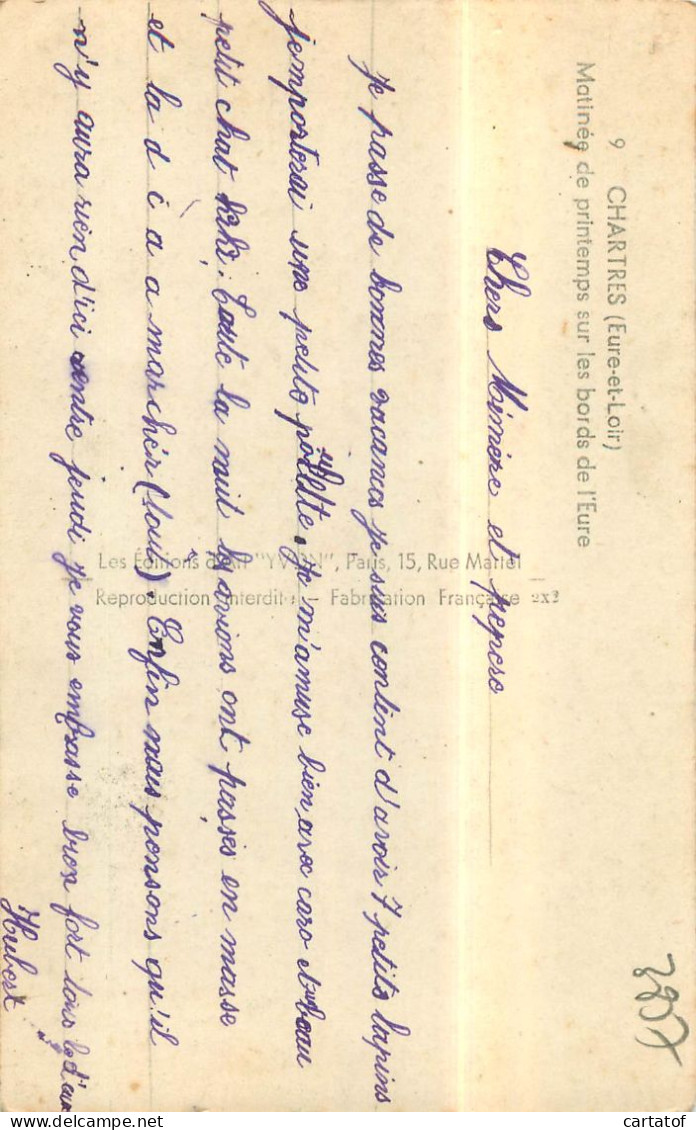 9 CHARTRES (Eure-et-Loir)
Matinée de printemps sur les bords de l'Eure
Chers Mémère et pepere
Je passe de bonnes vacances je suis contint d'avoir 7 petits lapins
j'emporterai une petite poulette. Je m'amuse bien avec caro et beau
petit chat kiki. Toute la nuit les avions ont passés en masse
et la d c à a marcher (tout). Enfin nous pensons qu'il
n'y aura rien d'ici entre jeudi Je vous embrasse bien fort tous les d'eux
Hubert
Les Editions d'Art "YVON", Paris, 15, Rue Martel
Reproduction interdite — Fabrication Française
2957
cartatof